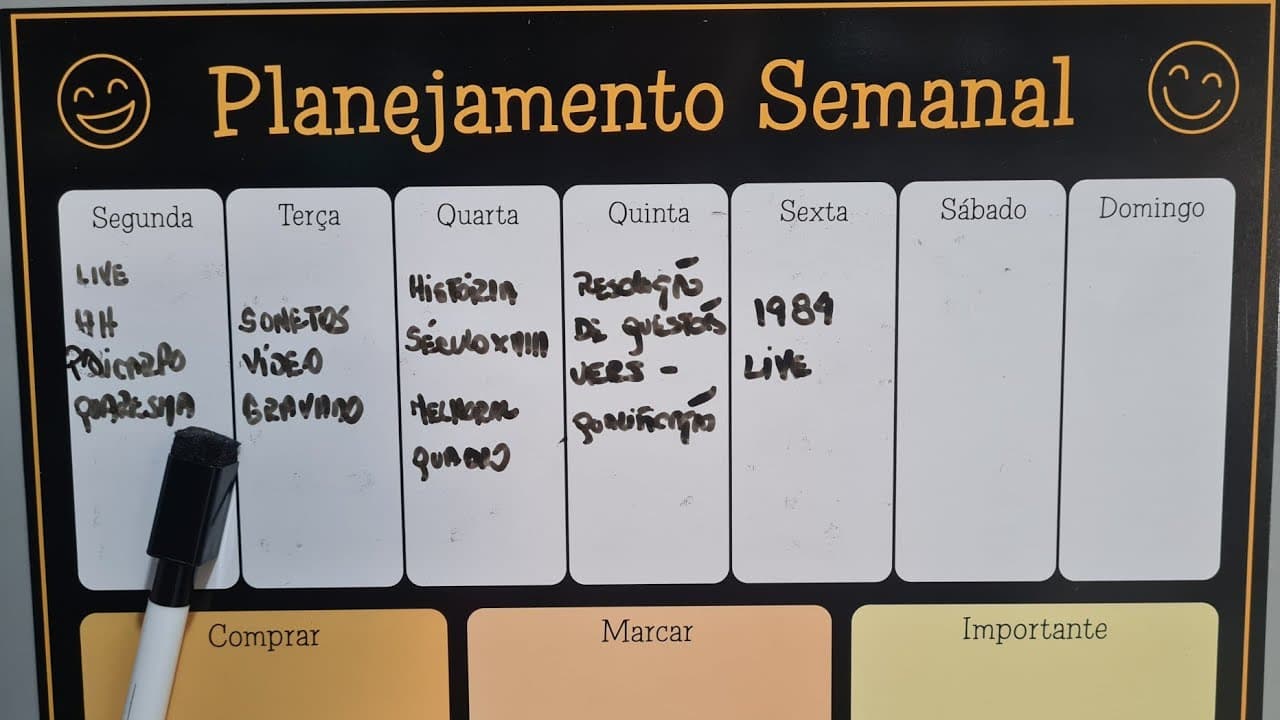 Planejamento Semanal
Segunda
LIVE
HH
POLICARPO
QUARESMA
Terça
SONETOS
VÍDEO
GRAVADO
Quarta
HISTÓRIA
SÉCULO XVIII
MELHORAR
QUADRO
Quinta
RESOLUÇÃO
DE QUESTÕES
VERS -
Sexta
1984
LIVE
Sábado
Domingo
Comprar
Marcar
Importante